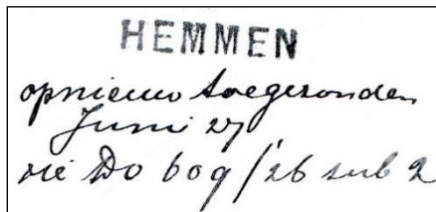 HEMMEN
opnieuw toegezonden
Juni 27
zie Do 609/26 sub 2